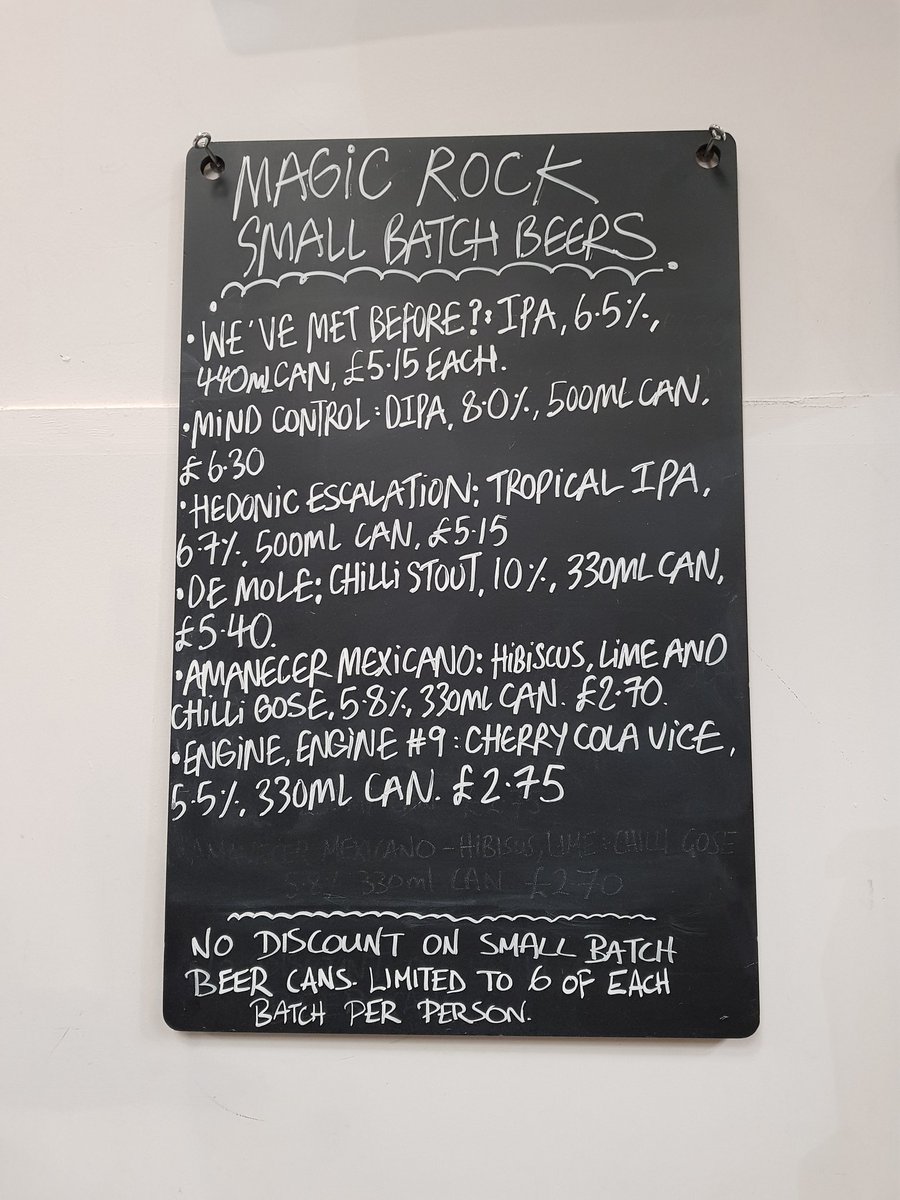 MAGIC ROCK
SMALL BATCH BEERS
• WE'VE MET BEFORE?: IPA, 6.5%,
440ML CAN, £5.15 EACH.
• MIND CONTROL: DIPA, 8.0%, 500ML CAN,
£6.30
• HEDONIC ESCALATION: TROPICAL IPA,
6.7%, 500ML CAN, £5.15
• DE MOLE: CHILLI STOUT, 10%, 330ML CAN,
£5.40.
• AMANECER MEXICANO: HIBISCUS, LIME AND
CHILLI GOSE, 5.8%, 330ML CAN. £2.70.
• ENGINE, ENGINE #9: CHERRY COLA VICE,
5.5%, 330ML CAN. £2.75
AMANECER MEXICANO - HIBISCUS, LIME + CHILLI GOSE
5.8% 330ml CAN £2.70
NO DISCOUNT ON SMALL BATCH
BEER CANS. LIMITED TO 6 OF EACH
BATCH PER PERSON.